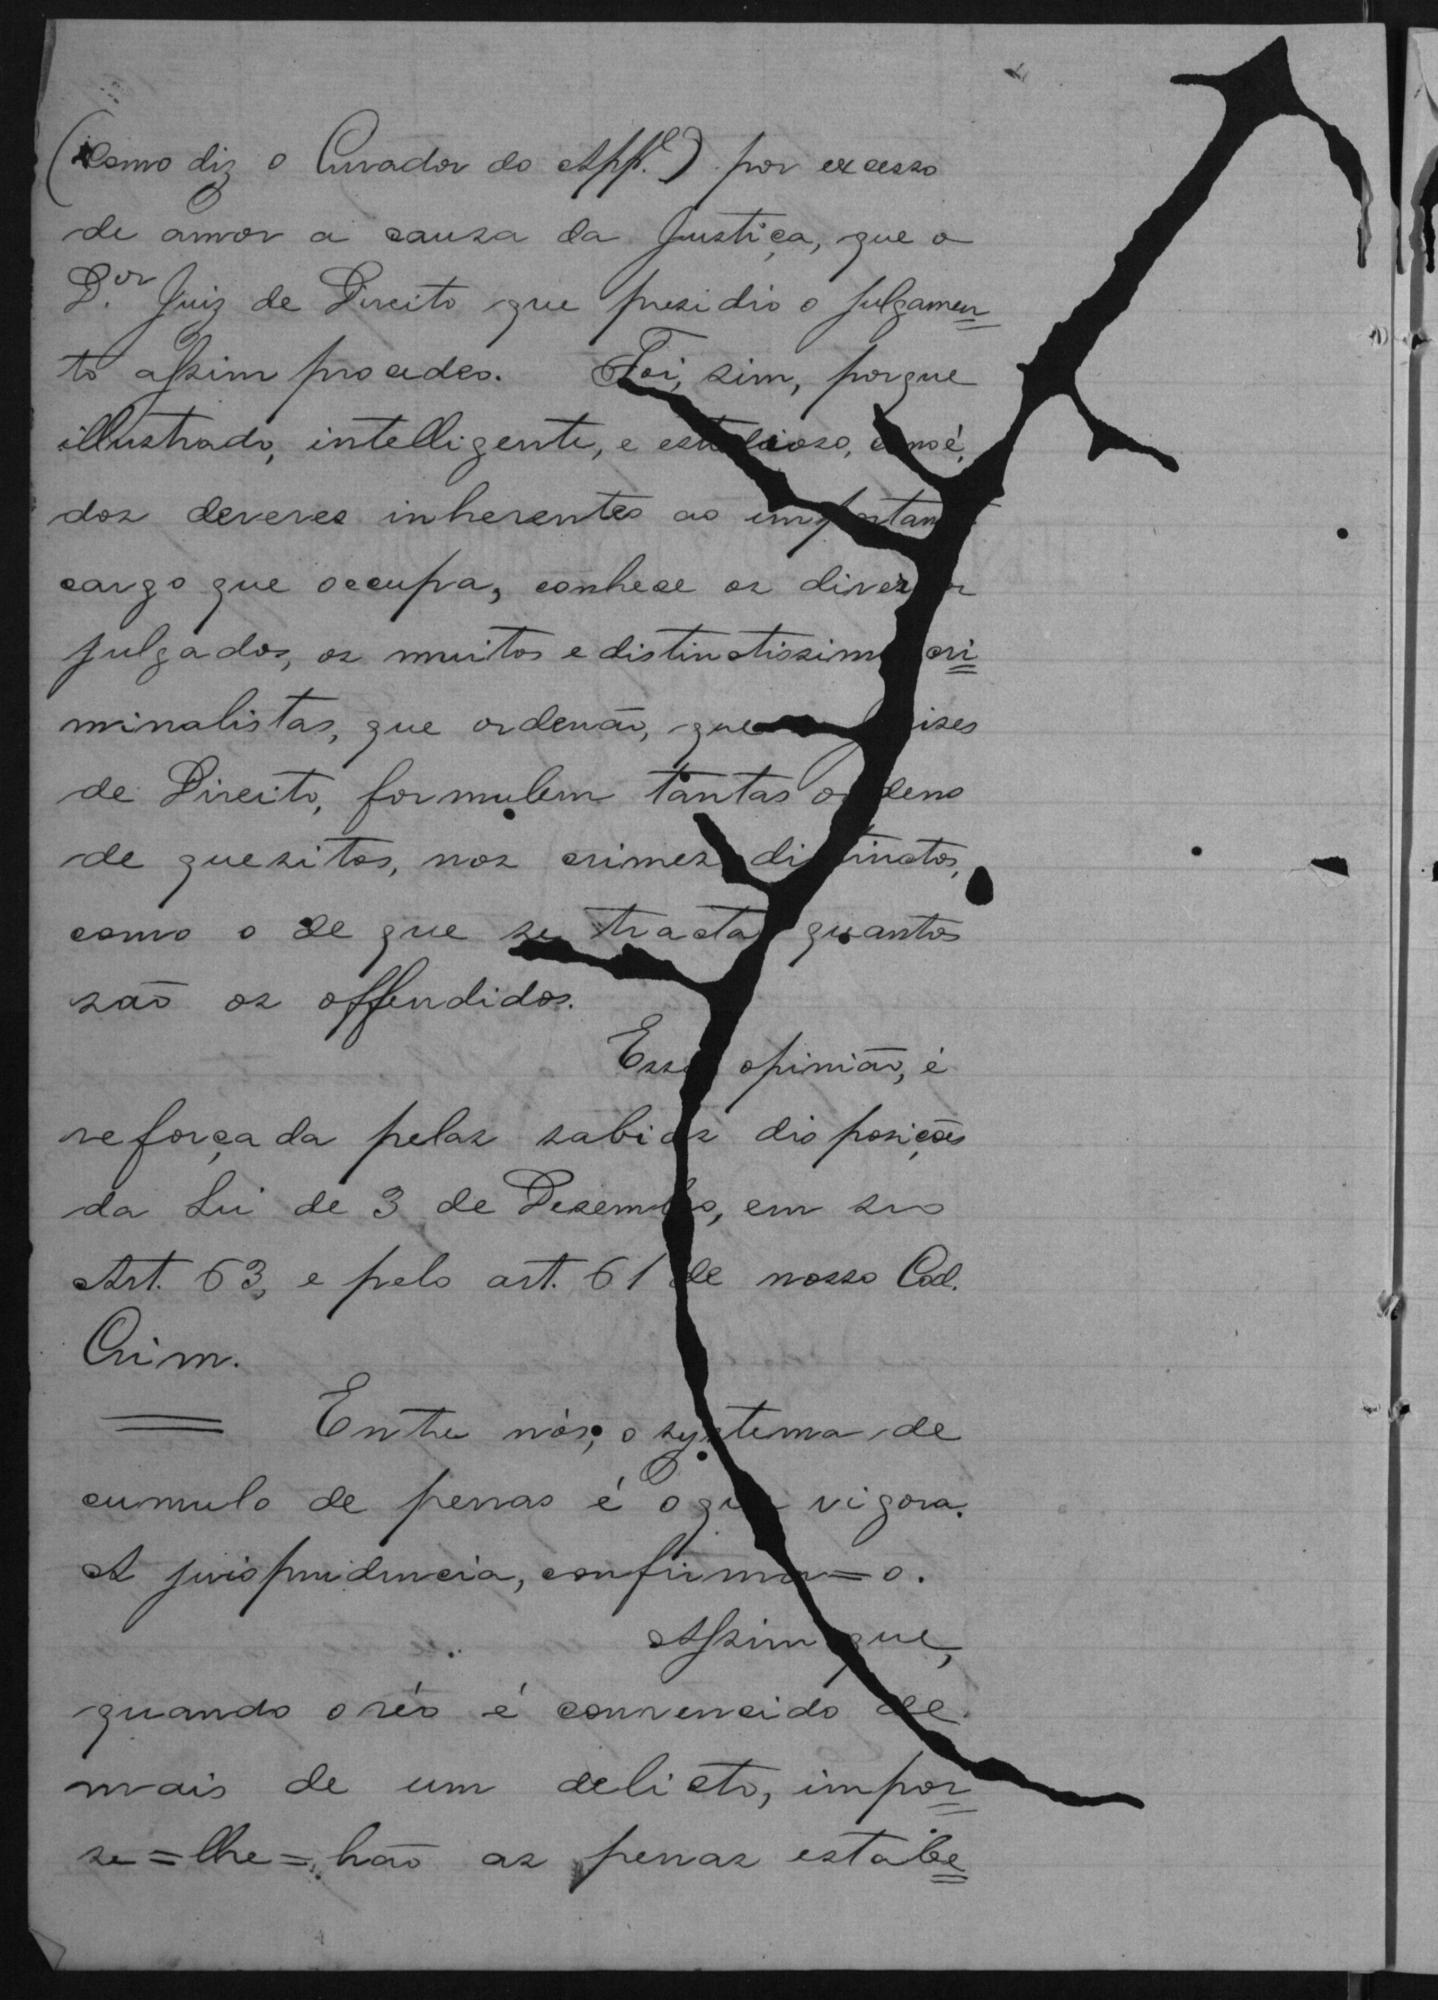 (Como diz o Curador do App.e) por excesso
de amor a causa da Justiça, que o
D.or Juiz de Direito que presidio o julgamen=
to assim procedeo. Foi, sim, porque
illustrado, intelligente, e estudioso, como é,
dos deveres inherentes ao importante
cargo que occupa, conhece os diversos
julgados, os muitos e distinctissimos cri=
minalistas, que ordenão, que juizes
de Direito, formulem tantas ordens
de quesitos, nos crimes distinctos,
como o de que se tracta quantos
são os offendidos.
Essa opinião, é
reforçada pelas sabias disposições
da Lei de 3 de Desembro, em seo
Art. 63, e pelo art. 61 de nosso Cod.
Crim.
Entre nós, o systema de
cumulo de penas é o que vigora.
A jurisprudencia, confirma=o.
Assim que,
quando o réo é convencido de
mais de um delicto, impor=
se=lhe=hão as penas estabe=